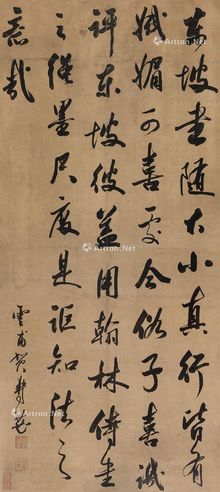 東坡書隨大小真行皆有
娬媚可喜處今俗子喜譏
評東坡彼蓋用翰林侍書
之繩墨尺度是詎知法之
意哉
雲甫賀壽慈
Artron.Net
Artron.Net
Artron.Net